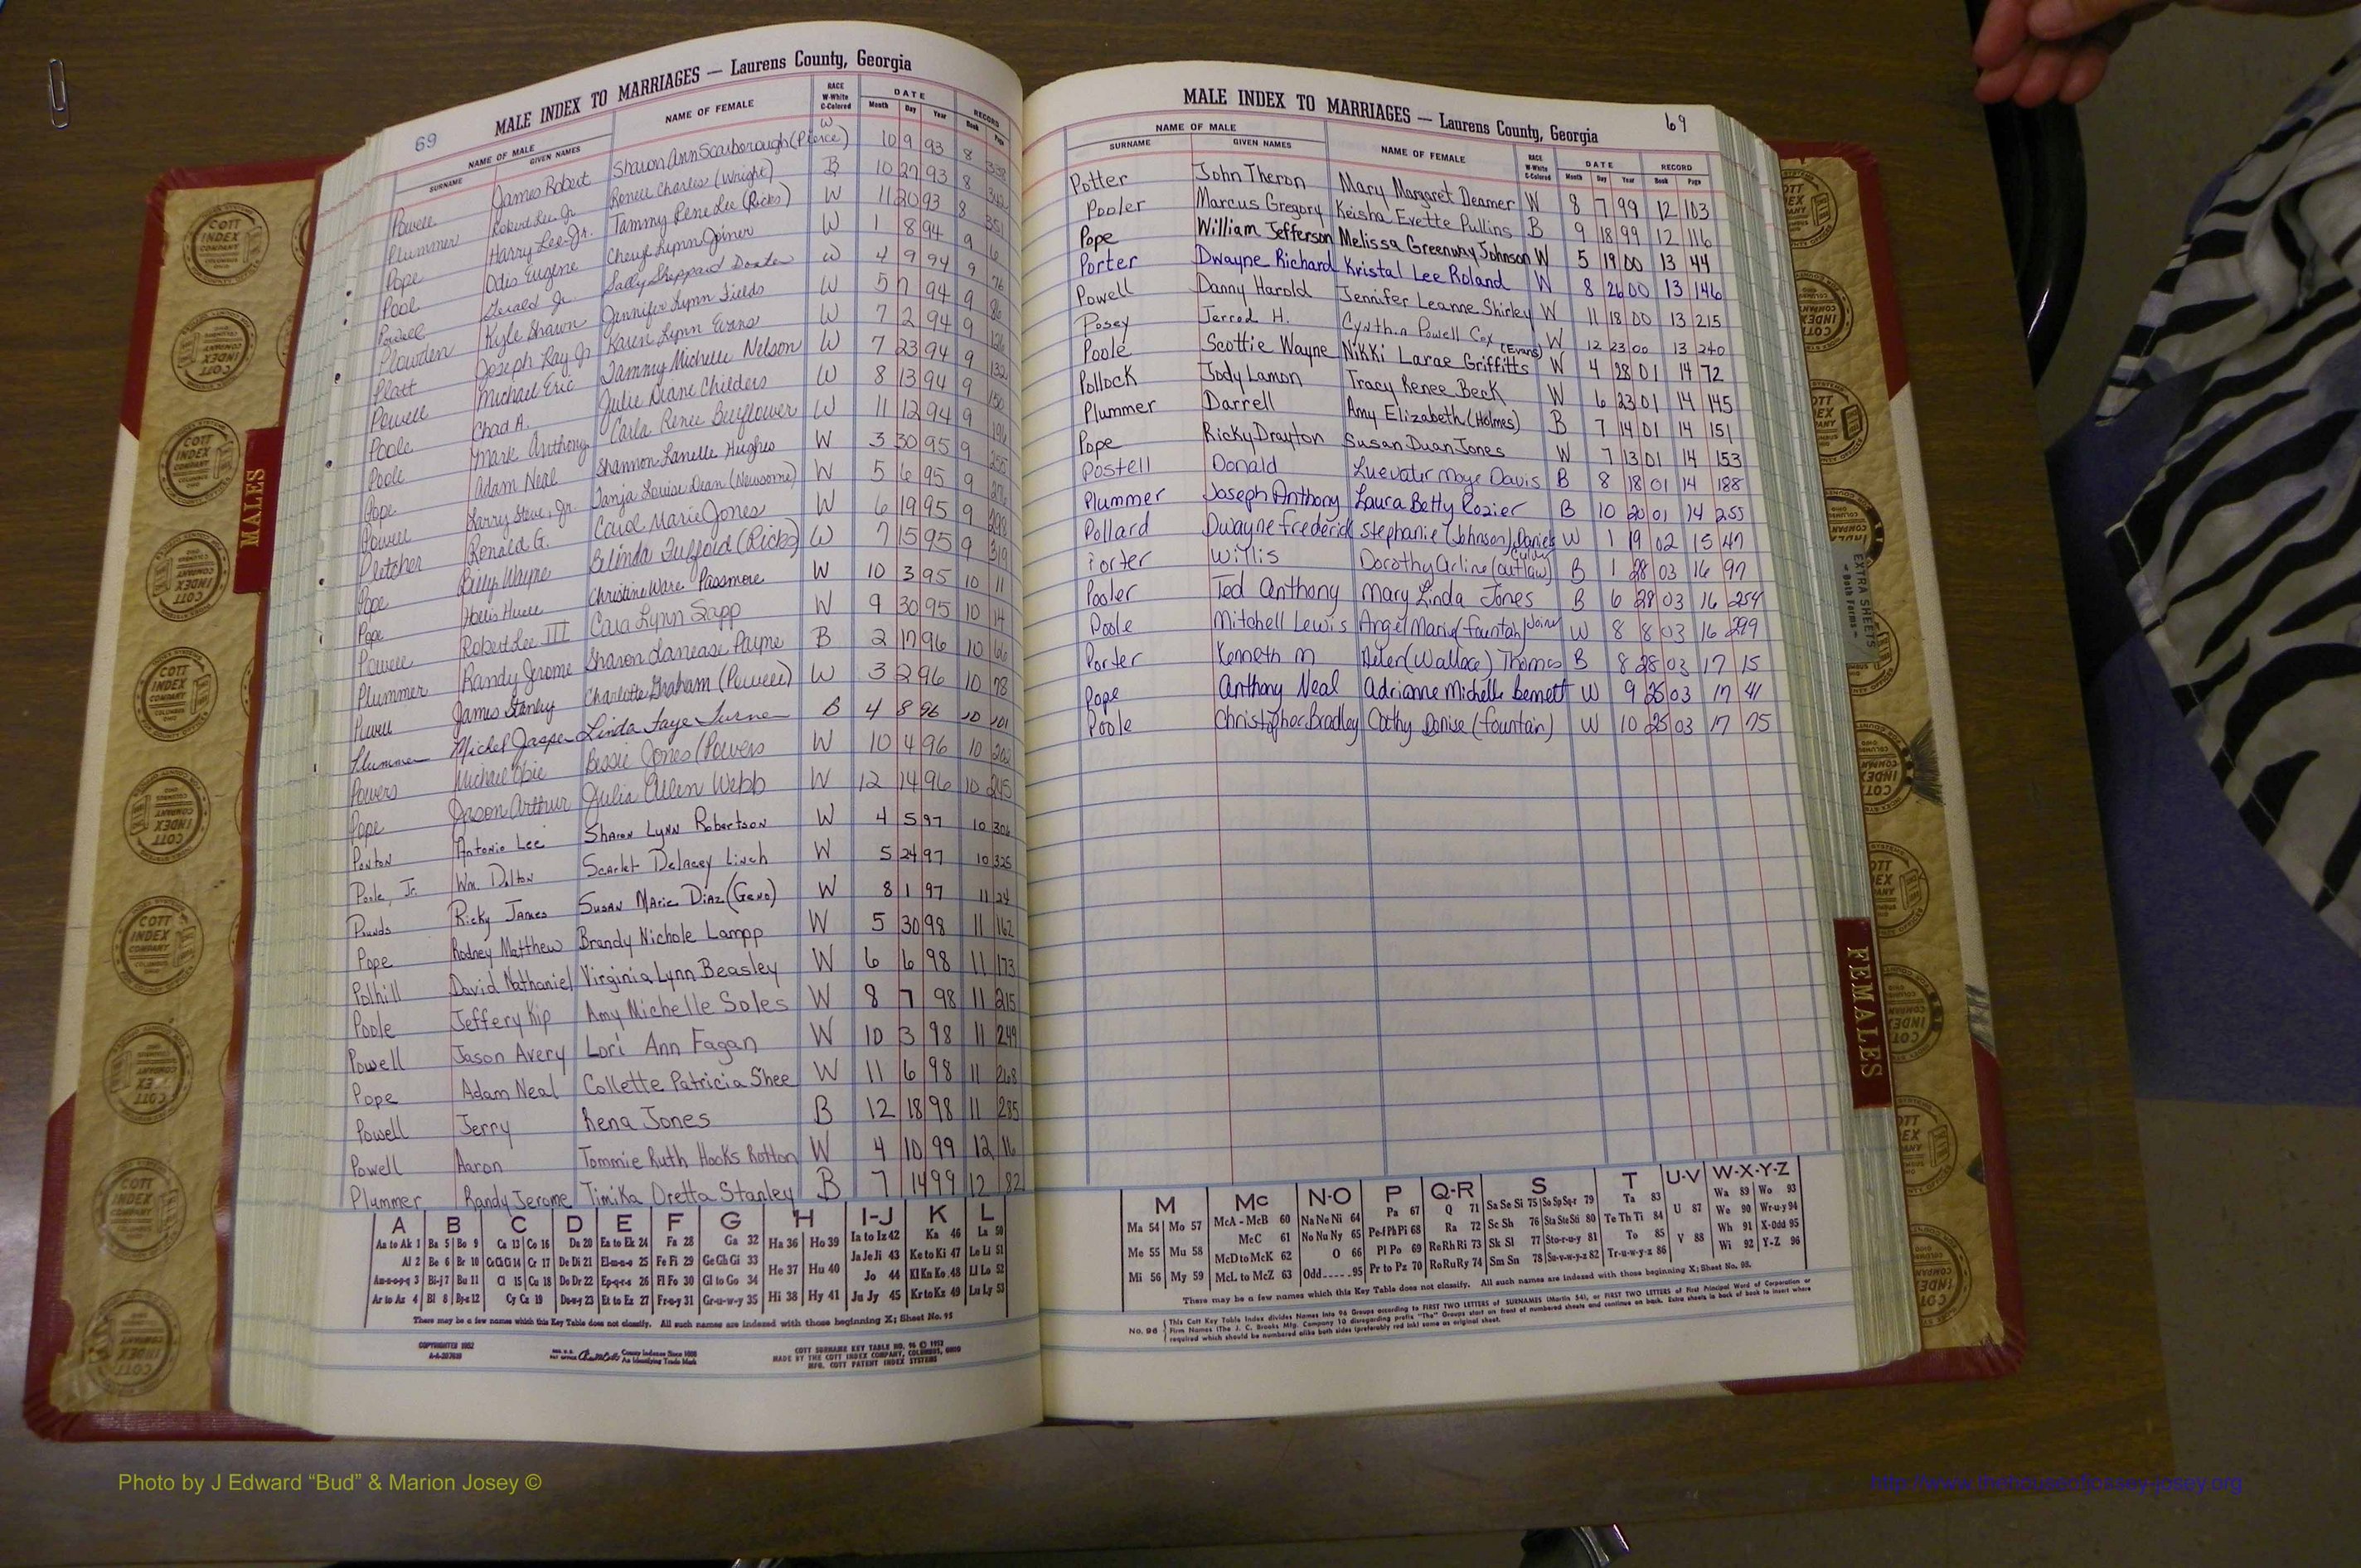 69
MALE INDEX TO MARRIAGES — Laurens County, Georgia
NAME OF MALE NAME OF FEMALE RACE W-White C-Colored DATE RECORD
SURNAME GIVEN NAMES Month Day Year Book Page
Powell James Robert Sharon Ann Scarborough (Pierce) W 10 9 93 8
Plummer Robert Lee Jr. Renell Charles (Wright) B 10 27 93 8
Pope Harry Lee Jr. Tammy Rene Lee (Ricks) W 11 20 93 8 351
Pool Odis Eugene Cheryl Lynn Joiner W 1 8 94 9 6
Powell Gerald Jr. Sally Sheppard W 4 9 94 9 76
Plowden Kyle Shawn Jennifer Lynn Fields W 5 7 94 9 86
Platt Joseph Ray Jr Karen Lynn Evans W 7 2 94 9
Powell Michael Eric Tammy Michelle Nelson W 7 23 94 9 132
Poole Chad A. Julie Diane Childers W 8 13 94 9 150
Poole Mark Anthony Carla Renee W 11 12 94 9
Pope Adam Neal Shannon Lanelle Hughes W 3 30 95 9
Powell Larry Steve, Jr. Tanja Louise Dean (Newsome) W 5 6 95 9
Pletcher Ronald G. Carol Marie Jones W 6 19 95 9
Pope Billy Wayne Belinda Fulford (Ricks) W 7 15 95 9 319
Pope Hollis Christine Ware Passmore W 10 3 95 10 11
Powell Robert Lee III Cara Lynn Sapp W 9 30 95 10 14
Plummer Randy Jerome Sharon Lanease Payne B 2 17 96 10 66
Powell James Stanley Charlotte Graham (Powell) W 3 2 96 10 78
Plummer Michel Jasper Linda Faye Turner B 4 8 96 10 101
Powers Michael Obie Bessie Jones (Powers W 10 4 96 10 202
Pope Jason Arthur Julia Ellen Webb W 12 14 96 10 245
Ponton Antonio Lee Sharon Lynn Robertson W 4 5 97 10 306
Poole, Jr. Wm. Dalton Scarlet Delacey Linch W 5 24 97 10 325
Pounds Ricky James Susan Marie Diaz (Geno) W 8 1 97 11 24
Pope Rodney Matthew Brandy Nichole Lampp W 5 30 98 11 162
Polhill David Nathaniel Virginia Lynn Beasley W 6 6 98 11 173
Poole Jeffery Kip Amy Michelle Soles W 8 7 98 11 215
Powell Jason Avery Lori Ann Fagan W 10 3 98 11 249
Pope Adam Neal Collette Patricia Shee W 11 6 98 11 268
Powell Jerry Rena Jones B 12 18 98 11 285
Powell Aaron Tommie Ruth Hooks Rotton W 4 10 99 12 16
Plummer Randy Jerome Timika Oretta Stanley B 7 14 99 12 82
A B C D E F G H I-J K L
Aa to Ak 1 Ba 5 Bo 9 Ca 13 Co 16 Da 20 Ea to Ek 24 Fa 28 Ga 32 Ha 36 Ho 39 Ia to Iz 42 Ka 46 La 50
Al 2 Be 6 Br 10 Ce Ch Ci 14 Cr 17 De Di 21 El-m-n-o 25 Fe Fi 29 Ge Gh Gi 33 He 37 Hu 40 Ja Je Ji 43 Ke to Ki 47 Le Li 51
Am-n-o-p-q 3 Bi-j 7 Bu 11 Cl 15 Cu 18 Do Dr 22 Ep-q-r-s 26 Fl Fo 30 Gl to Go 34 Jo 44 Kl Kn Ko 48 Ll Lo 52
Ar to Az 4 Bl 8 By-z 12 Cy Cz 19 Du-w-y 23 Et to Ez 27 Fr-u-y 31 Gr-u-w-y 35 Hi 38 Hy 41 Ju Jy 45 Kr to Kz 49 Lu Ly 53
There may be a few names which this Key Table does not classify. All such names are indexed with those beginning X; Sheet No. 95
COPYRIGHTED 1952
County Indexes Since 1888
An Identifying Trade Mark
COTT SURNAME KEY TABLE NO. 96 ©
MADE BY THE COTT INDEX COMPANY, COLUMBUS, OHIO
MFG. COTT PATENT INDEX SYSTEMS
MALE INDEX TO MARRIAGES — Laurens County, Georgia
69
NAME OF MALE NAME OF FEMALE RACE W-White C-Colored DATE RECORD
SURNAME GIVEN NAMES Month Day Year Book Page
Potter John Theron Mary Margaret Deamer W 8 7 99 12 103
Pooler Marcus Gregory Keisha Evette Pullins B 9 18 99 12 116
Pope William Jefferson Melissa Greenway Johnson W 5 19 00 13 44
Porter Dwayne Richard Kristal Lee Roland W 8 26 00 13 146
Powell Danny Harold Jennifer Leanne Shirley W 11 18 00 13 215
Posey Jerrod H. Cynthia Powell Cox (Evans) W 12 23 00 13 240
Poole Scottie Wayne Nikki Larae Griffitts W 4 28 01 14 72
Pollock Jody Lamon Tracy Renee Beck W 6 23 01 14 145
Plummer Darrell Amy Elizabeth (Holmes) B 7 14 01 14 151
Pope Ricky Drayton Susan Duan Jones W 7 13 01 14 153
Postell Donald Luevater Moye Davis B 8 18 01 14 188
Plummer Joseph Anthony Laura Betty Rozier B 10 20 01 14 255
Pollard Dwayne Frederick Stephanie (Johnson) Daniels W 1 19 02 15 47
Porter Willis Dorothy Arline (Outlaw) B 1 28 03 16 97
Pooler Ted Anthony Mary Linda Jones B 6 28 03 16 254
Poole Mitchell Lewis Angel Marie (Fountain) Joiner W 8 8 03 16 299
Porter Kenneth M Helen (Wallace) Thomas B 8 28 03 17 15
Pope Anthony Neal Adrianne Michelle Bennett W 9 25 03 17 41
Poole Christopher Bradley Cathy Denise (Fountain) W 10 25 03 17 75
M Mc N-O P Q-R S T U-V W-X-Y-Z
Ma 54 Mo 57 McA - McB 60 Na Ne Ni 64 Pa 67 Q 71 Sa Se Si 75 So Sp Sq-r 79 Ta 83 U 87 Wa 89 Wo 93
Me 55 Mu 58 McC 61 No Nu Ny 65 Pe-f Ph Pi 68 Ra 72 Sc Sh 76 Sta Ste Sti 80 Te Th Ti 84 We 90 Wr-u-y 94
McD to McK 62 O 66 Pl Po 69 Re Rh Ri 73 Sk Sl 77 Sto-r-u-y 81 To 85 V 88 Wh 91 X-Odd 95
Mi 56 My 59 McL to McZ 63 Odd 95 Pr to Pz 70 Ro Ru Ry 74 Sm Sn 78 Su-v-w-y-z 82 Tr-u-w-y-z 86 Wi 92 Y-Z 96
There may be a few names which this Key Table does not classify. All such names are indexed with those beginning X; Sheet No. 95.
No. 96
This Cott Key Table Index divides Names into 96 Groups according to FIRST TWO LETTERS of SURNAMES (Martin 54), or FIRST TWO LETTERS of First Principal Word of Corporation or
Firm Names (The J. C. Brooks Mfg. Company 10 disregarding prefix "The" Groups start on front of numbered sheets and continue on back. Extra sheets in back of book to insert where
required which should be numbered alike both sides (preferably red ink) same as original sheet.
MALES
FEMALES
EXTRA SHEETS
COTT INDEX COMPANY
Photo by J Edward “Bud” & Marion Josey ©
http://www.thehouseofjossey-josey.org